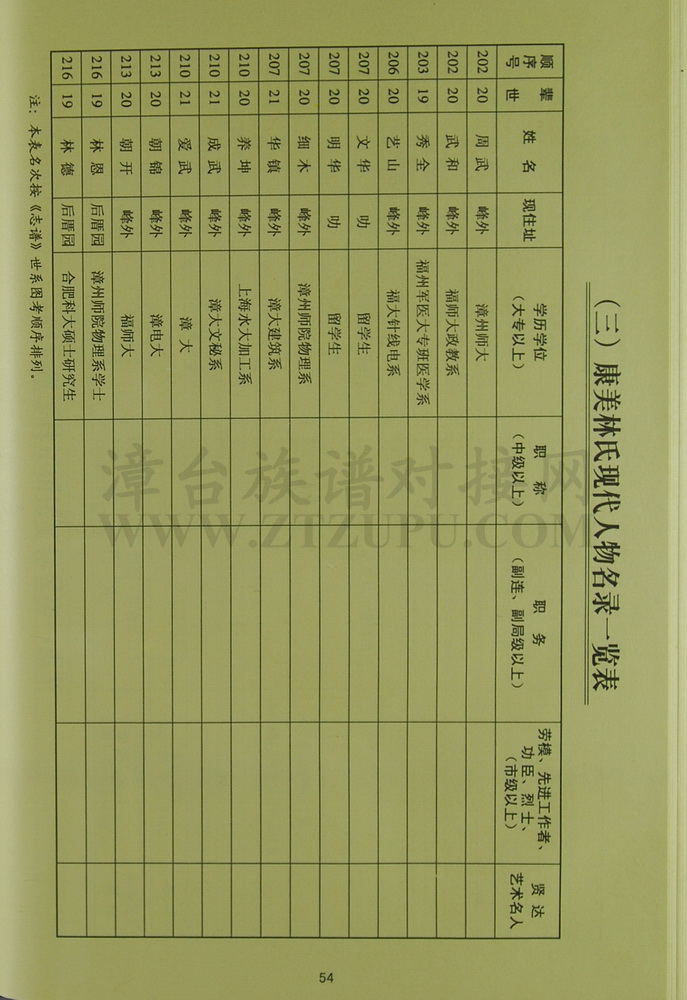 (三)康美林氏现代人物名录一览表
顺序号 辈世 姓名 现住址 学历学位(大专以上) 职称(中级以上) 职务(副连、副局级以上) 劳模、先进工作者、功臣、烈士、(市级以上) 贤达艺术名人
202 20 周武 峰外 漳州师大
202 20 武和 峰外 福师大政教系
203 19 秀全 峰外 福州军医大专班医学系
206 20 艺山 峰外 福大针线电系
207 20 文华 叻 留学生
207 20 明华 叻 留学生
207 20 细木 峰外 漳州师院物理系
207 21 华镇 峰外 漳大建筑系
210 20 养坤 峰外 上海水大加工系
210 21 成武 峰外 漳大文秘系
210 21 爱武 峰外 漳大
213 20 朝锦 峰外 漳电大
213 20 朝开 峰外 福师大
216 19 林恩 后厝园 漳州师院物理系学士
216 19 林德 后厝园 合肥科大硕士研究生
注:本表名次按《志谱》世系图考顺序排列。
54
漳台族谱对接网
WWW.ZTZUPU.COM